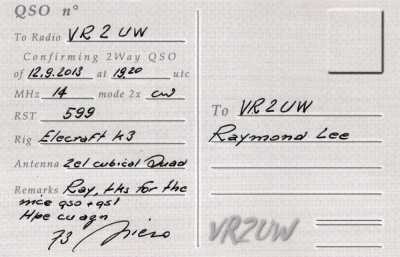 QSO n°
To Radio VR2UW
Confirming 2Way QSO
of 12.9.2013 at 1920 utc
MHz 14 mode 2x cw
RST 599
Rig Elecraft K3
Antenna 2el cubical Quad
Remarks Ray, tks for the
nice qso + qsl
Hpe cu agn
73 Piero
To VR2UW
Raymond Lee
VR2UW